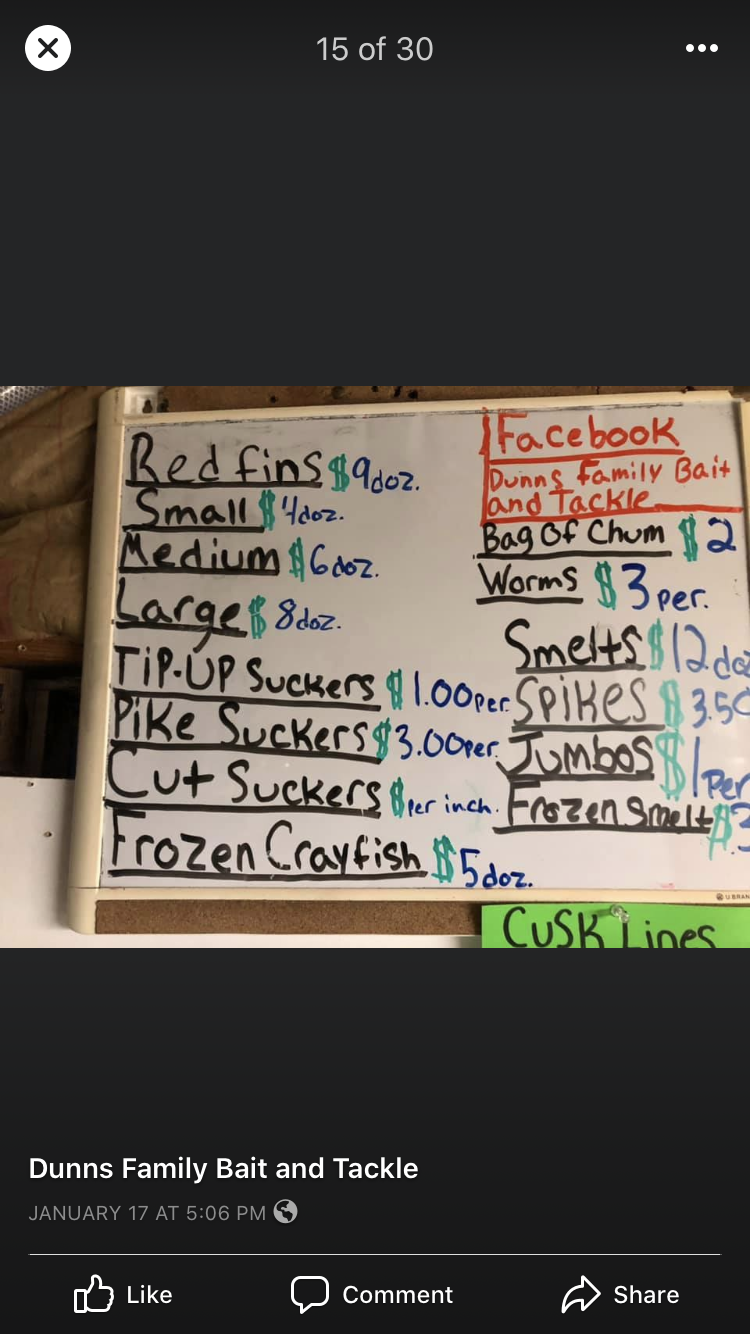 15 of 30
Red fins $9doz.
Small $4doz.
Medium $6doz.
Large $8doz.
TiP-UP Suckers $1.00per.
Pike Suckers $3.00per.
Cut Suckers $per inch.
Frozen Crayfish $5doz.
Facebook
Dunns Family Bait
and Tackle
Bag Of Chum $2
Worms $3 per.
Smelts $12
Spikes $3.50
Jumbos $1 Per
Frozen Smelt $3
Cusk Lines
Dunns Family Bait and Tackle
JANUARY 17 AT 5:06 PM
Like
Comment
Share